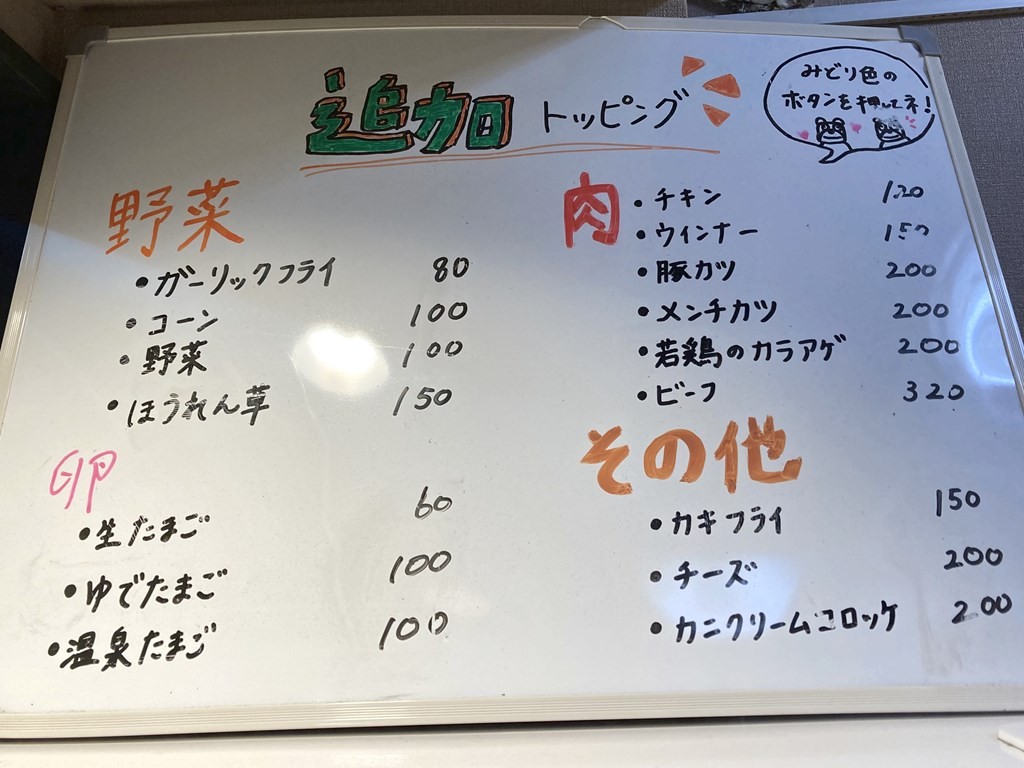 追加 トッピング
みどり色の
ボタンを押してネ!
野菜
・ガーリックフライ 80
・コーン 100
・野菜 100
・ほうれん草 150
卵
・生たまご 60
・ゆでたまご 100
・温泉たまご 100
肉
・チキン 120
・ウインナー 150
・豚カツ 200
・メンチカツ 200
・若鶏のカラアゲ 200
・ビーフ 320
その他
・カキフライ 150
・チーズ 200
・カニクリームコロッケ 200